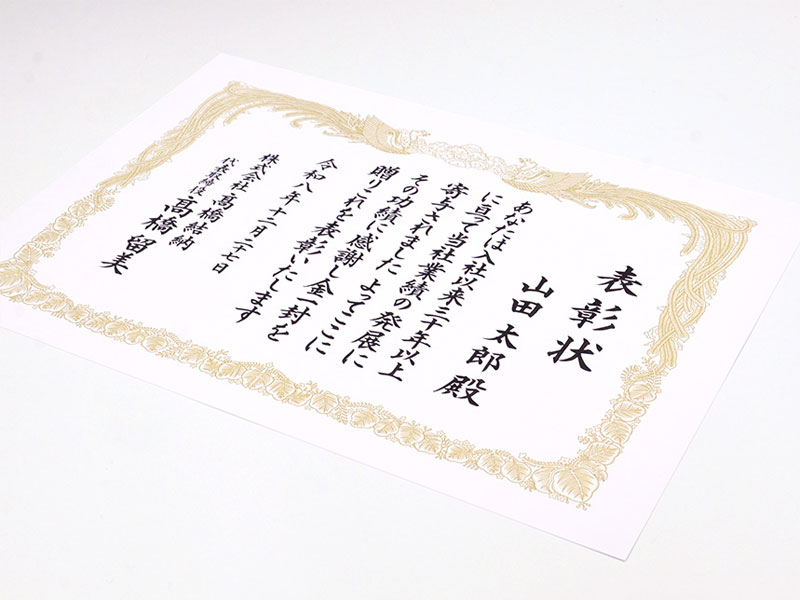 表彰状
山田太郎殿
あなたは入社以来三十年以上
に亘って当社業績の発展に
寄与されました よってここに
その功績に感謝し金一封を
贈りこれを表彰いたします
令和八年十一月二十七日
株式会社髙橋結納
代表取締役 髙橋留美